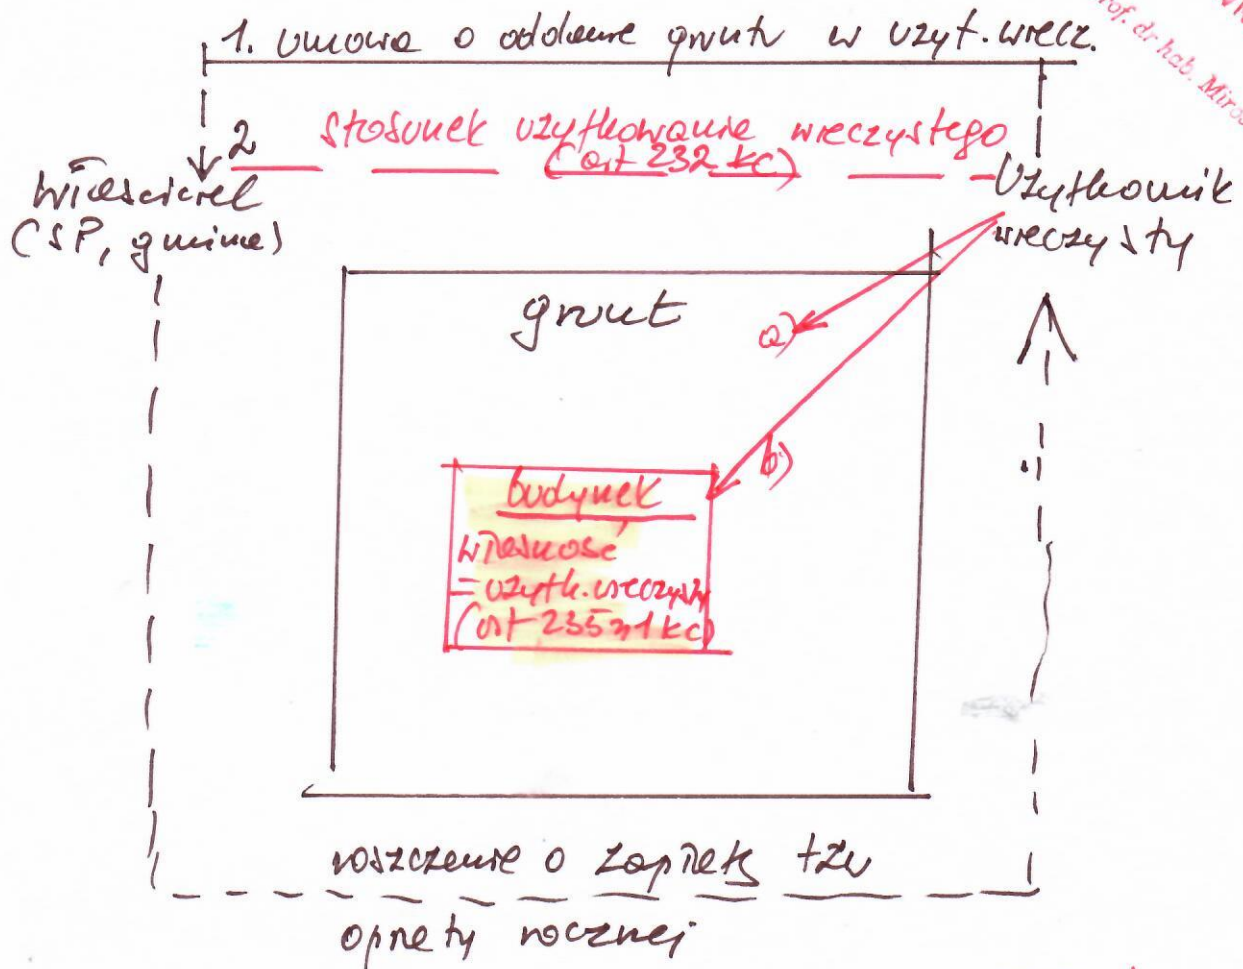 prof. dr hab.
1. Umowa o oddanie gruntu w użyt. wiecz.
2 stosunek użytkowania wieczystego
(art 232 kc)
właściciel
(SP, gmina)
Użytkownik
wieczysty
grunt
a)
b)
budynek
własność
= użytk. wieczysty
(art 235 § 1 kc)
roszczenie o zapłatę tzw
opłaty rocznej